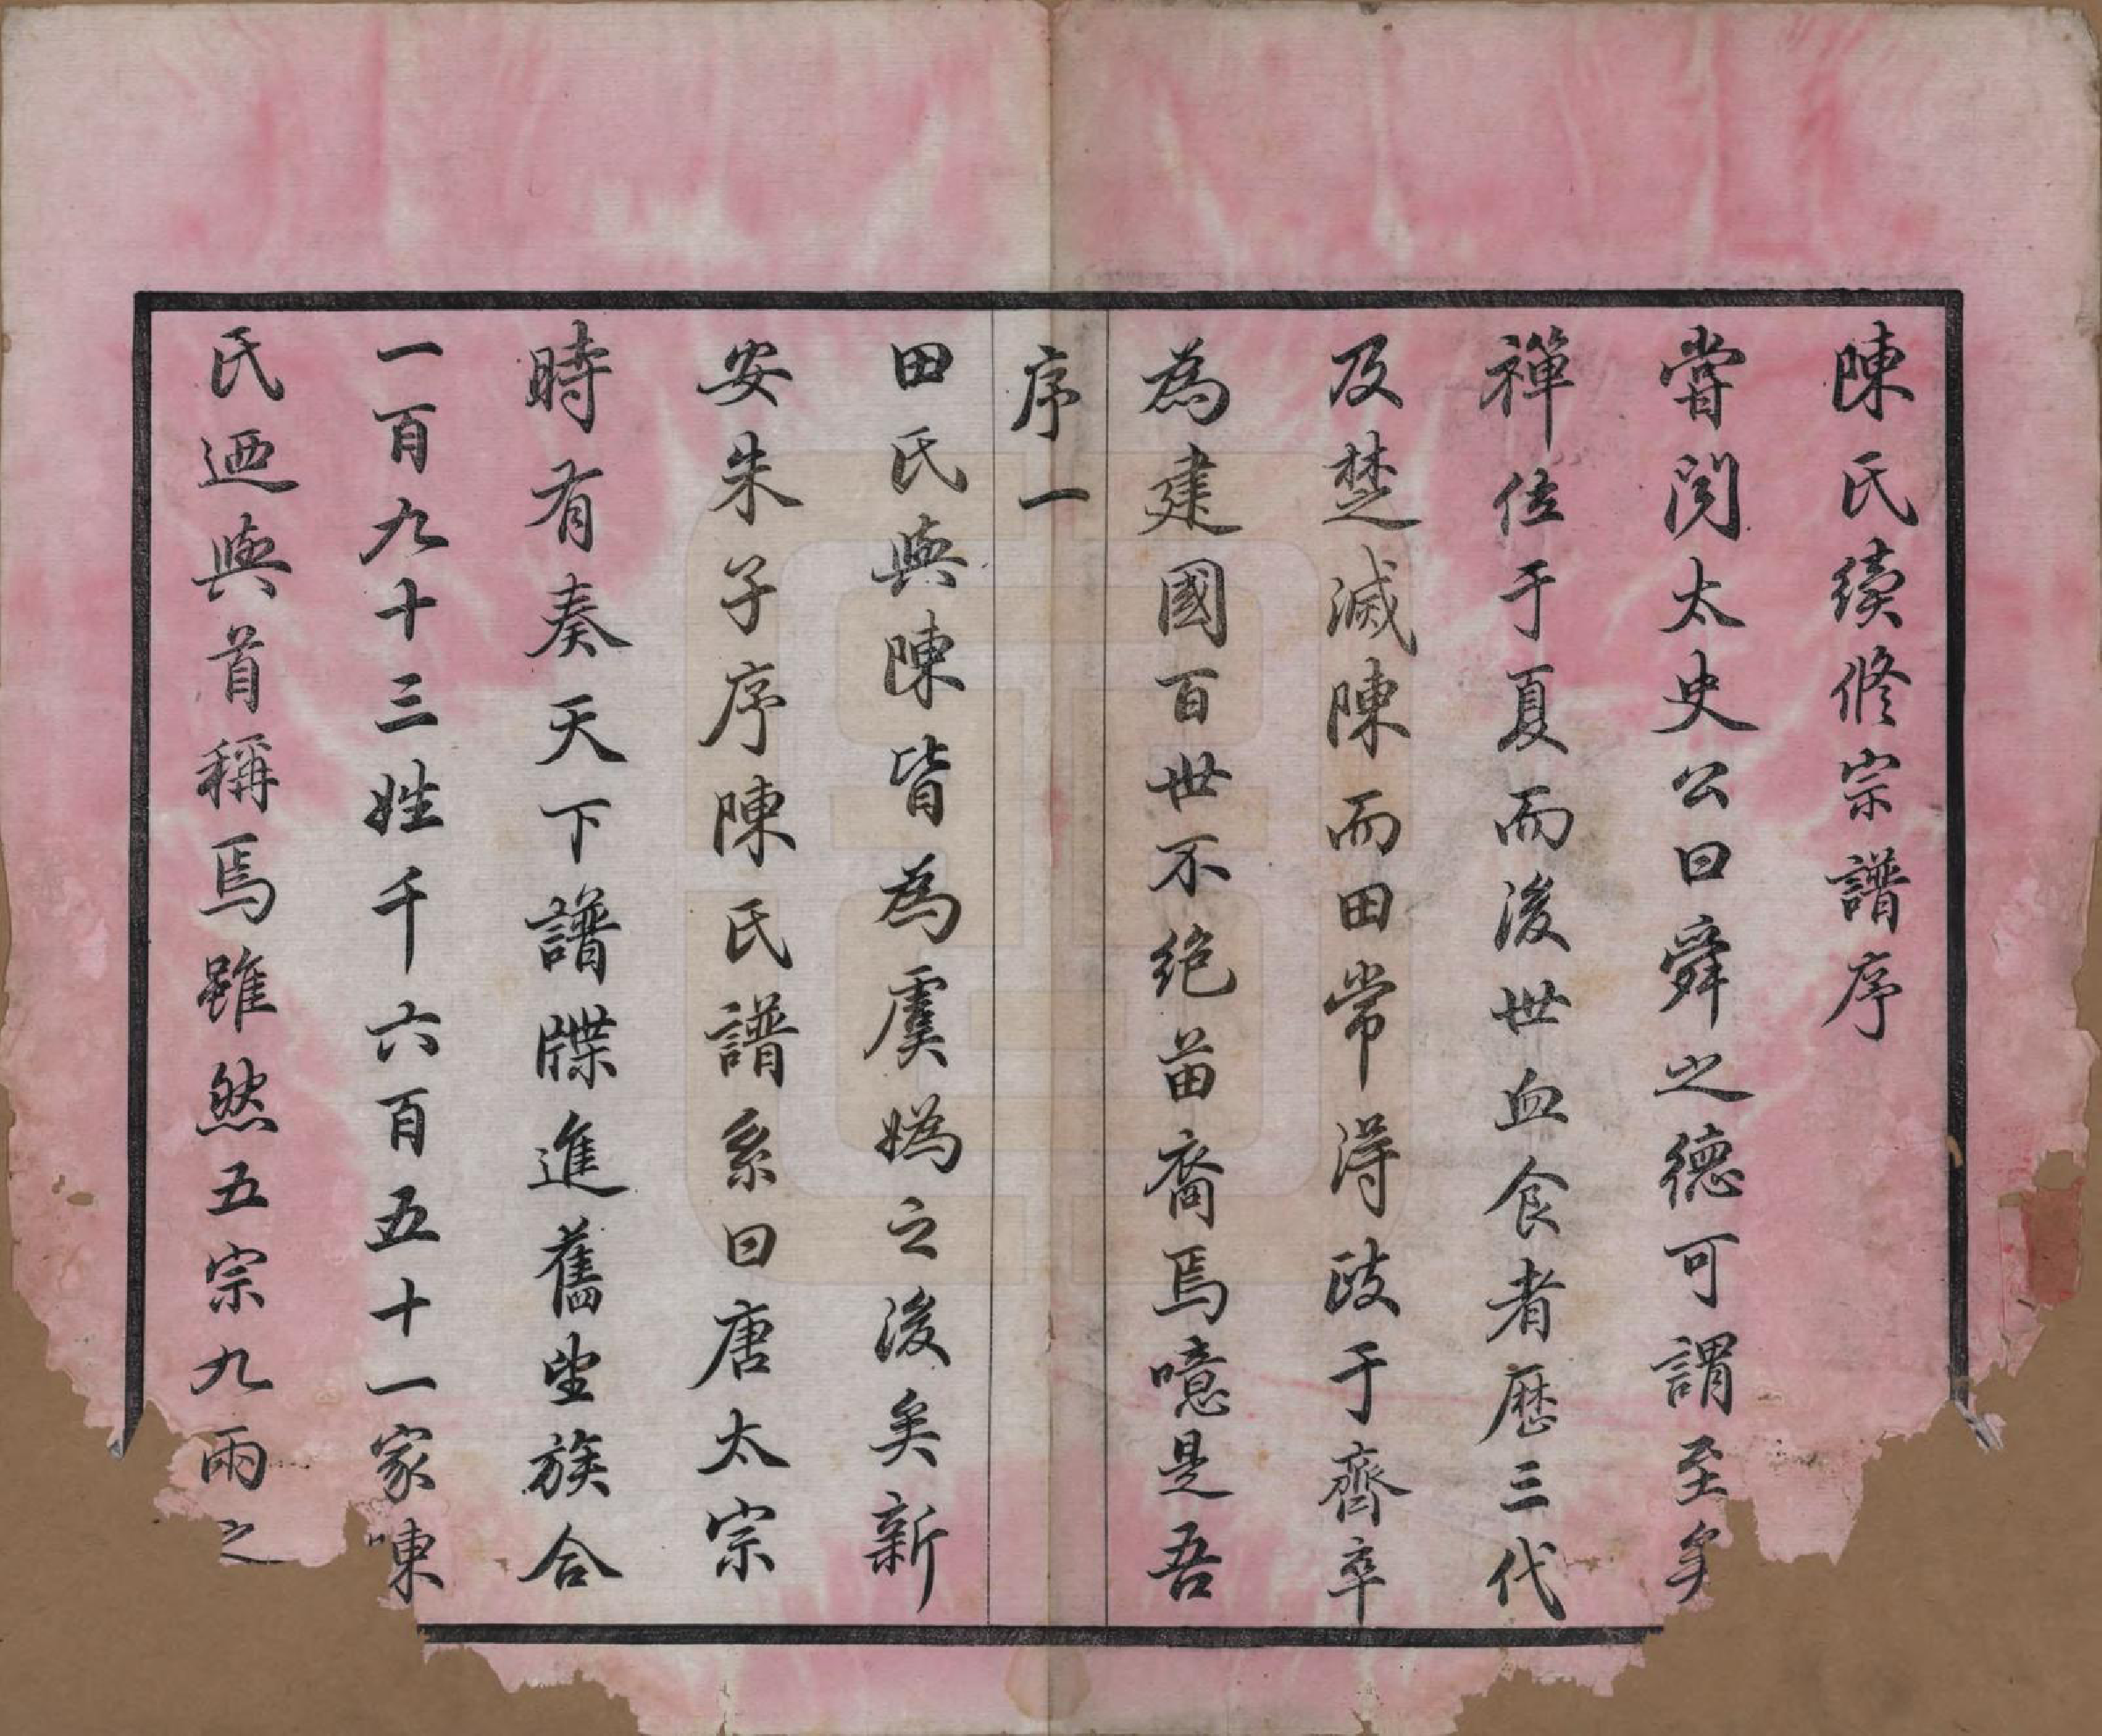 陳氏續修宗譜序
嘗閱太史公曰舜之德可謂至矣
禪位于夏而後世血食者歷三代
及楚滅陳而田常得政于齊卒
為建國百世不絕苗裔焉噫是吾
序一
田氏與陳皆為虞媯之後矣新
安朱子序陳氏譜系曰唐太宗
時有奏天下譜牒進舊望族合
一百九十三姓千六百五十一家陳
氏迺與首稱焉雖然五宗九兩之